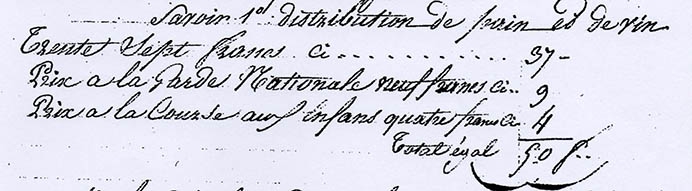 Savoir 1º distribution de pain et de vin
Trente Sept francs ci ............ 37 -
Prix a la Garde Nationale neuf francs ci.. 9
Prix a la Course aux Enfans quatre francs ci. 4
Total égal 50 f..